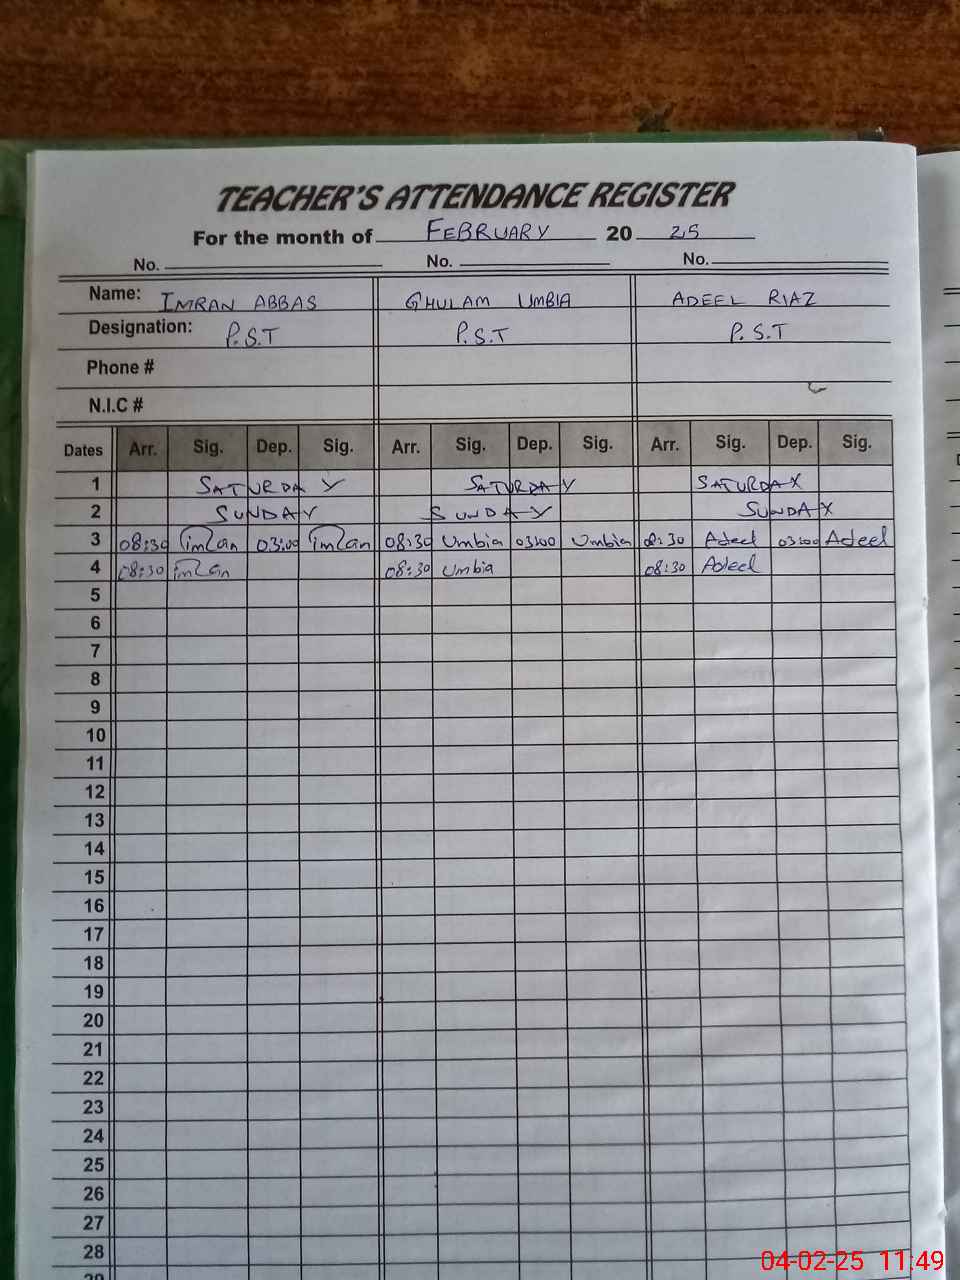 TEACHER'S ATTENDANCE REGISTER
For the month of FEBRUARY 20 25
No. No. No.
Name: IMRAN ABBAS GHULAM UMBIA ADEEL RIAZ
Designation: P.S.T P.S.T P.S.T
Phone #
N.I.C #
Dates Arr. Sig. Dep. Sig. Arr. Sig. Dep. Sig. Arr. Sig. Dep. Sig.
1 SATURDAY SATURDAY SATURDAY
2 SUNDAY SUNDAY SUNDAY
3 08:30 imran 03:00 imran 08:30 Umbia 03:00 Umbia 08:30 Adeel 03:00 Adeel
4 08:30 imran 08:30 Umbia 08:30 Adeel
5
6
7
8
9
10
11
12
13
14
15
16
17
18
19
20
21
22
23
24
25
26
27
28
29
04-02-25 11:49